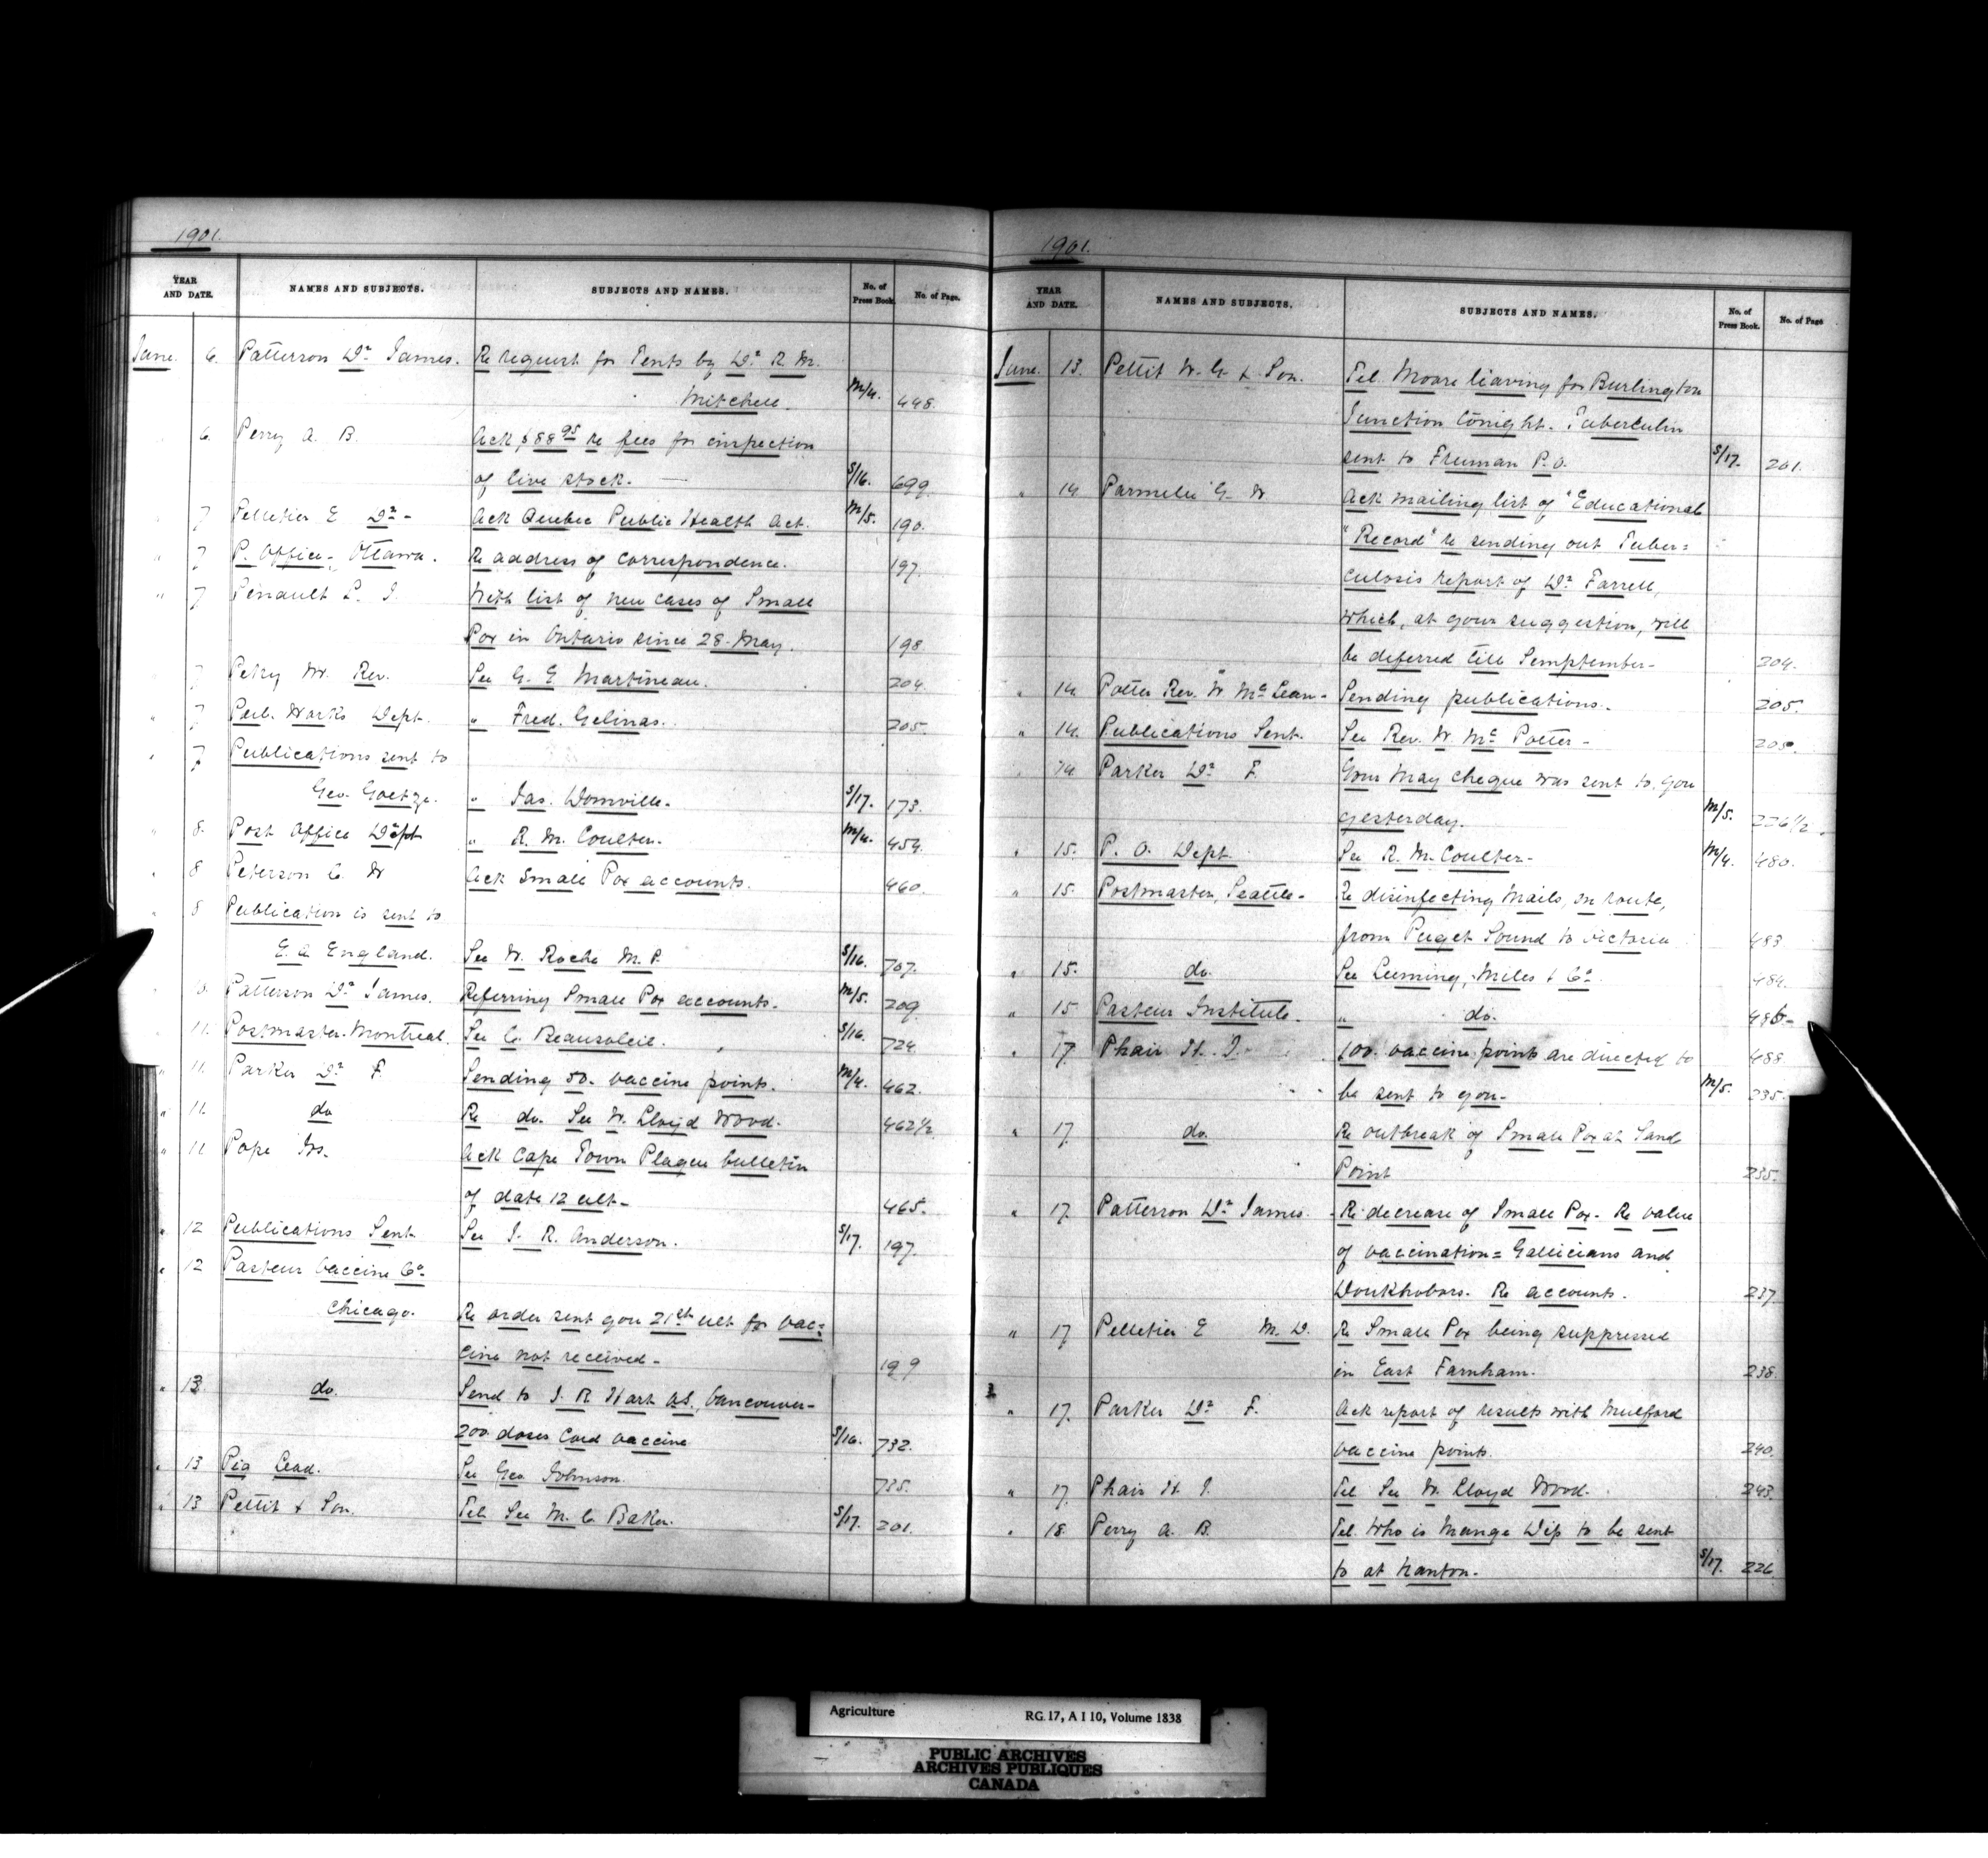 1901.
YEAR AND DATE. NAMES AND SUBJECTS. SUBJECTS AND NAMES. No. of Press Book. No. of Page.
June. 6. Patterson Dr James. Re request for Tents by Dr R. M.
Mitchell. M/4. 448.
6. Perry A. B. Ack $88.95 re fees for inspection
of live stock. — S/16. 699.
" 7 Pelletier E Dr - Ack Quebec Public Health Act. M/5. 190.
" 7 P. Office - Ottawa. Re address of correspondence. 197.
" 7 Penault L. J With list of new cases of Small
Pox in Ontario since 28 May. 198.
7 Petry W. Rev. See G. E Martineau. 204.
" 7 Pub. Works Dept. " Fred. Gelinas. 205.
" 7 Publications sent to
Geo. Goetze. " Jas. Domville. S/17. 173.
" 8. Post Office Dept " R. M. Coulter. M/4. 454.
" 8 Peterson C. W Ack Small Pox accounts. 460.
" 8 Publication is sent to
E. A. England. See W. Roche M. P. S/16. 707.
8. Patterson Dr James. Referring Small Pox accounts. M/5. 209
" 11. Postmaster-Montreal. See C. Beausoleil. S/16. 724.
" 11. Parker Dr F. Sending 50. vaccine points. M/4. 462.
" 11. do Re do. See W. Lloyd Wood. 462 1/2
" 11 Pope Jos. Ack Cape Town Plague bulletin
of date 12 ult - 465.
" 12 Publications Sent See J. R. Anderson. S/17. 197.
" 12 Pasteur Vaccine Co-
Chicago. Re order sent you 21st ult for vac=
cine not received - 199
" 13 do. Send to J. R Hart at S., Vancouver -
200 doses Cord vaccine S/16. 732.
" 13 Pig Lead. See Geo Johnson. 735.
" 13 Pettit & Son. Tel. See M. C. Baker. S/17. 201.
1901.
YEAR AND DATE. NAMES AND SUBJECTS. SUBJECTS AND NAMES. No. of Press Book. No. of Page
June. 13. Pettit W. G & Son. Tel. Moore leaving for Burlington
Junction tonight. Tuberculin
sent to Freeman P. O. S/17. 201.
" 14. Parmelee G. W Ack mailing list of "Educational
"Record" re sending out Tuber=
culosis report of Dr Farrell,
which, at your suggestion, will
be deferred till Semptember - 204.
" 14. Potter Rev. W McLean - Sending publications. 205.
" 14. Publications Sent. See Rev. W. Mc Potter - 205.
" 14 Parker Dr F. Your May cheque was sent to you
yesterday. M/5. 226 1/2.
" 15. P. O. Dept See R. M. Coulter - M/4. 480.
" 15. Postmaster, Seattle - Re disinfecting mails, on route,
from Puget Sound to Victoria 483
" 15. do. See Leeming, Miles & Co. 484.
" 15 Pasteur Institute. " do. 486-
" 17. Phair H. J. 100. vaccine points are directed to 488
be sent to you - M/5. 235.
" 17 do. Re outbreak of Small Pox at Sand
Point 235.
" 17. Patterson Dr James. Re decrease of Small Pox - Re value
of vaccination = Gallicians and
Doukhobors. Re accounts. 237
" 17 Pelletier E M. D. Re Small Pox being suppressed
in East Farnham. 238.
" 17. Parker Dr F. Ack report of results with Mulford
vaccine points. 240.
" 17 Phair H. J. Tel See W. Lloyd Wood. 243.
" 18. Perry A. B. Tel Who is Mange Dip to be sent
to at Nanton. S/17. 226
Agriculture RG 17, A I 10, Volume 1838
PUBLIC ARCHIVES
ARCHIVES PUBLIQUES
CANADA